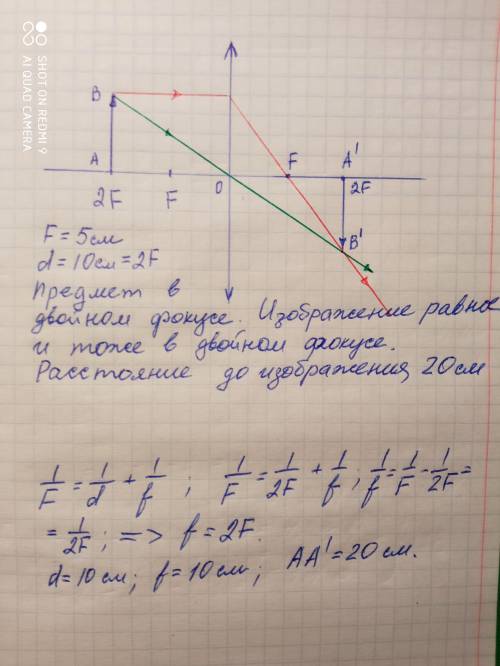 SHOT ON REDMI 9
AI QUAD CAMERA
B
A
2F
F
O
F
A'
2F
B'
F = 5см
d = 10см = 2F
Предмет в
двойном фокусе. Изображение равное
и тоже в двойном фокусе.
Расстояние до изображения 20см
1/F = 1/d + 1/f ; 1/F = 1/2F + 1/f ; 1/f = 1/F - 1/2F =
= 1/2F ; => f = 2F.
d = 10см ; f = 10см ; AA' = 20см.